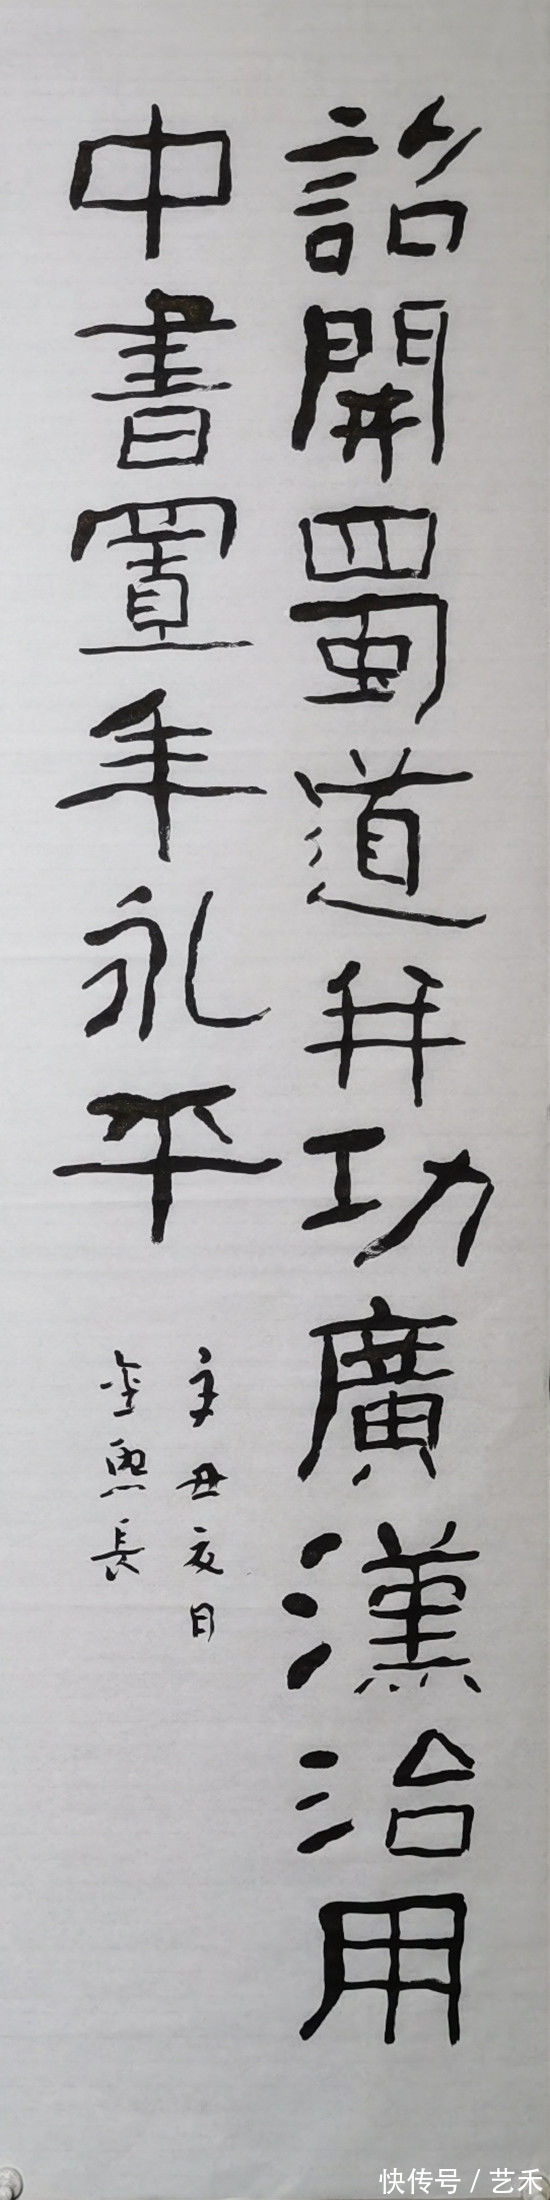 詔開蜀道并功廣漢治用
中書置年永平
辛丑亥日
金興長
快传号 / 艺禾